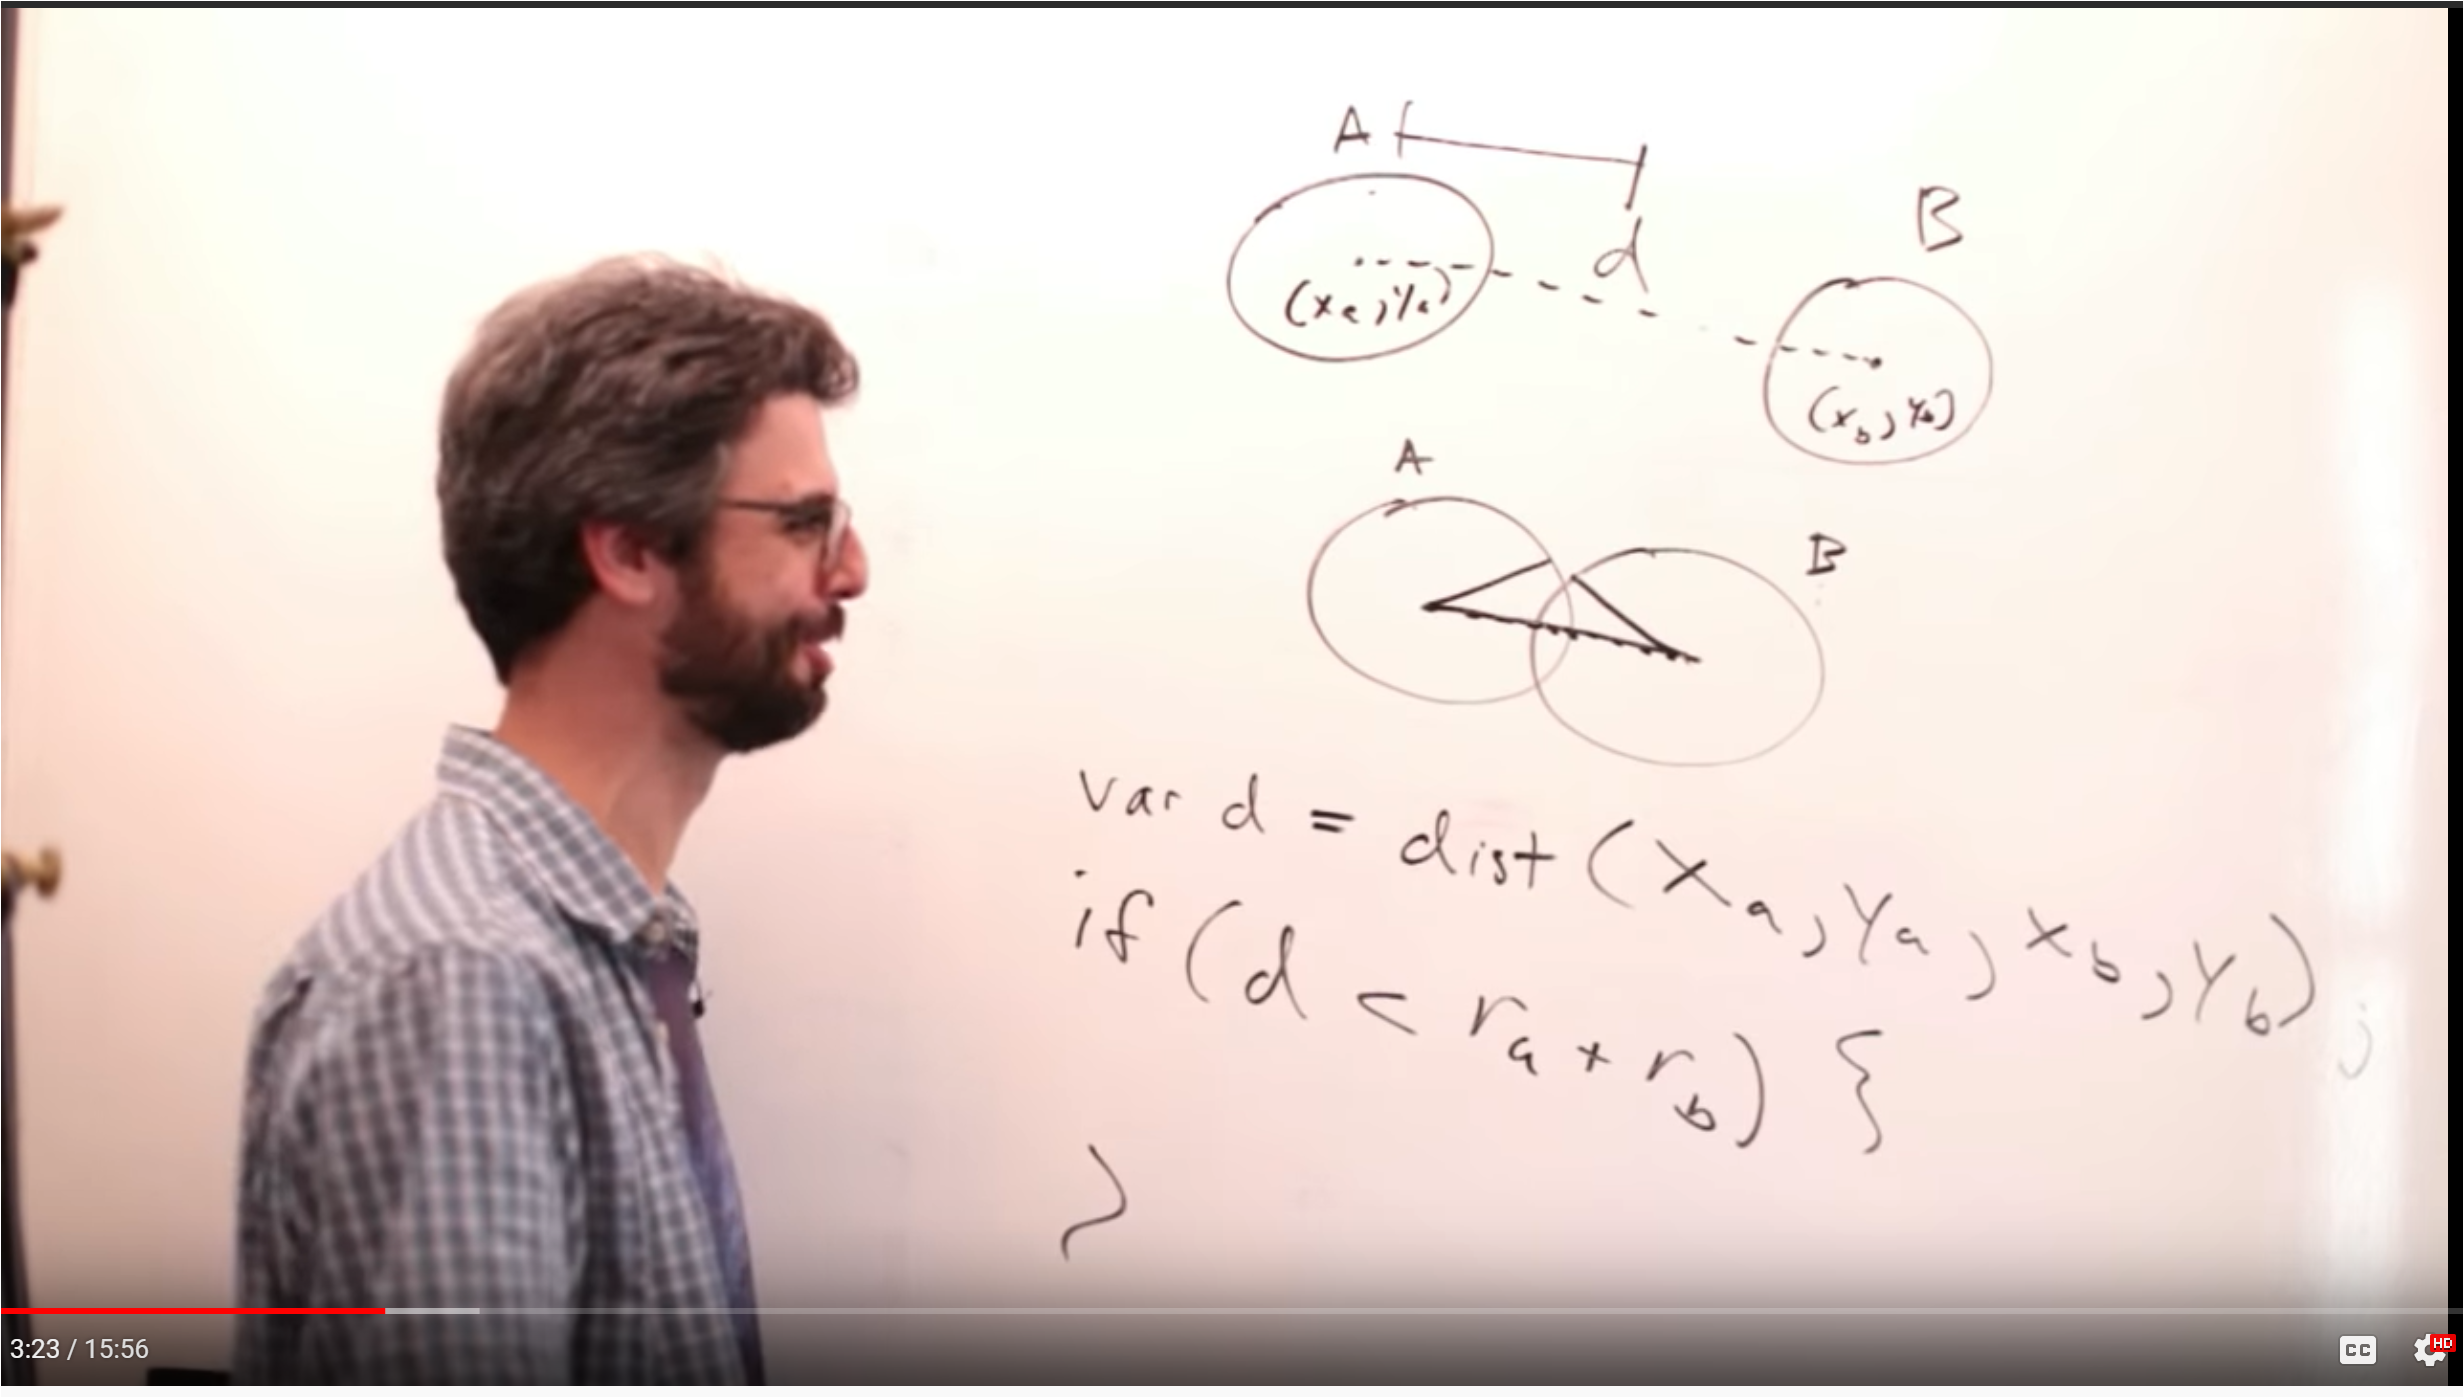 A
d
B
(xa, ya)
(xb, yb)
A
B
var d = dist(xa, ya, xb, yb);
if (d < ra + rb) {
}
3:23 / 15:56
CC
HD